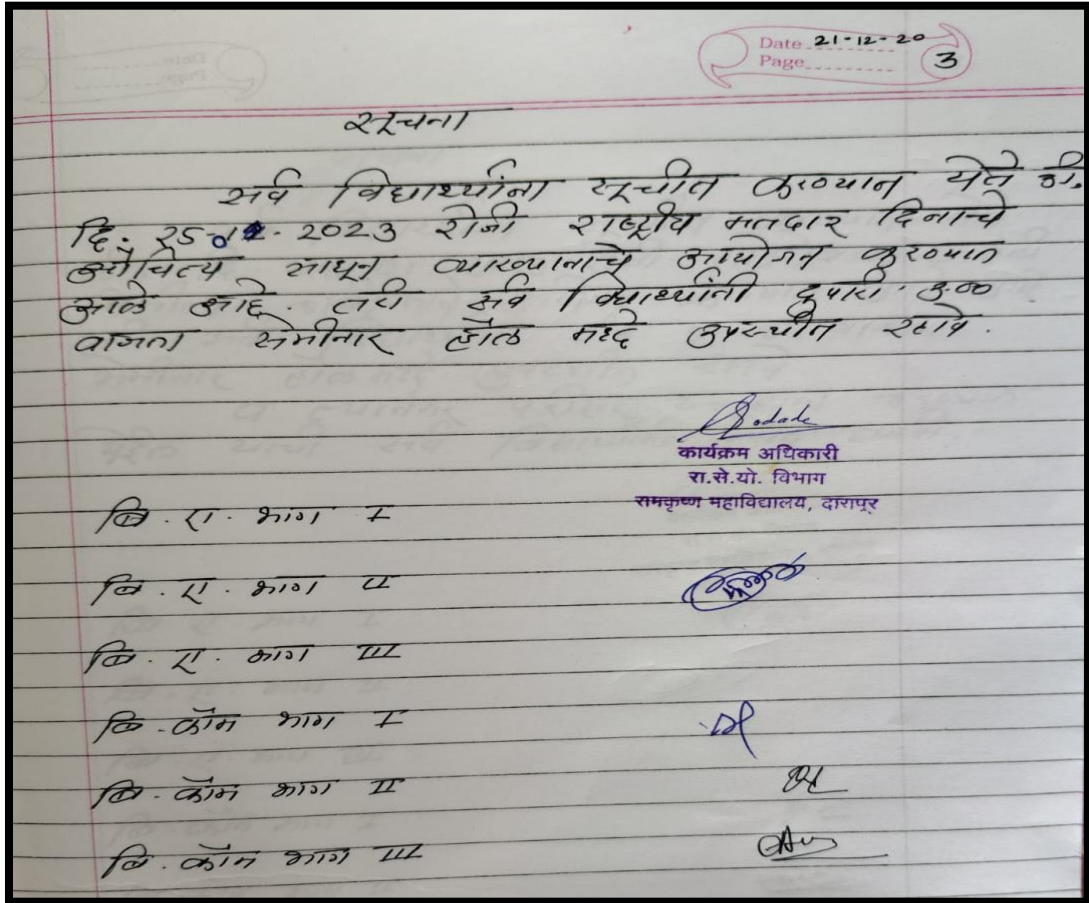 Date 21-12-20
Page 3
सूचना
सर्व विद्यार्थ्यांना सूचीत करण्यान येते की.
दि. 25.01. 2023 रोजी राष्ट्रीय मतदार दिनाचे
औचित्य साधून व्याख्यानाचे आयोजन करण्यात
आले आहे. तरी सर्व विद्यार्थ्यांनी दुपारी. 3.00
वाजता सेमीनार हॉल मध्दे उपस्थीत रहावे.
कार्यक्रम अधिकारी
रा.से.यो. विभाग
रामकृष्ण महाविद्यालय, दारापूर
बि. ए. भाग I
बि. ए. भाग II
बि. ए. भाग III
बि. कॉम भाग I
बि. कॉम भाग II
बि. कॉम भाग III